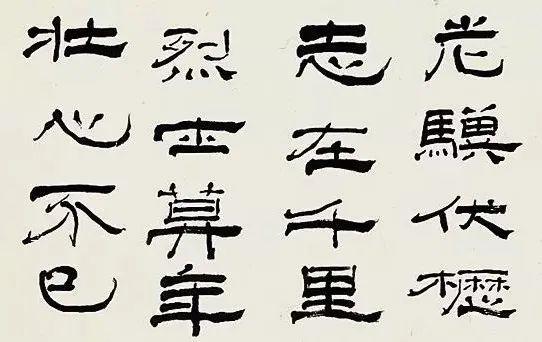 老驥伏櫪
志在千里
烈士莫年
壯心不已